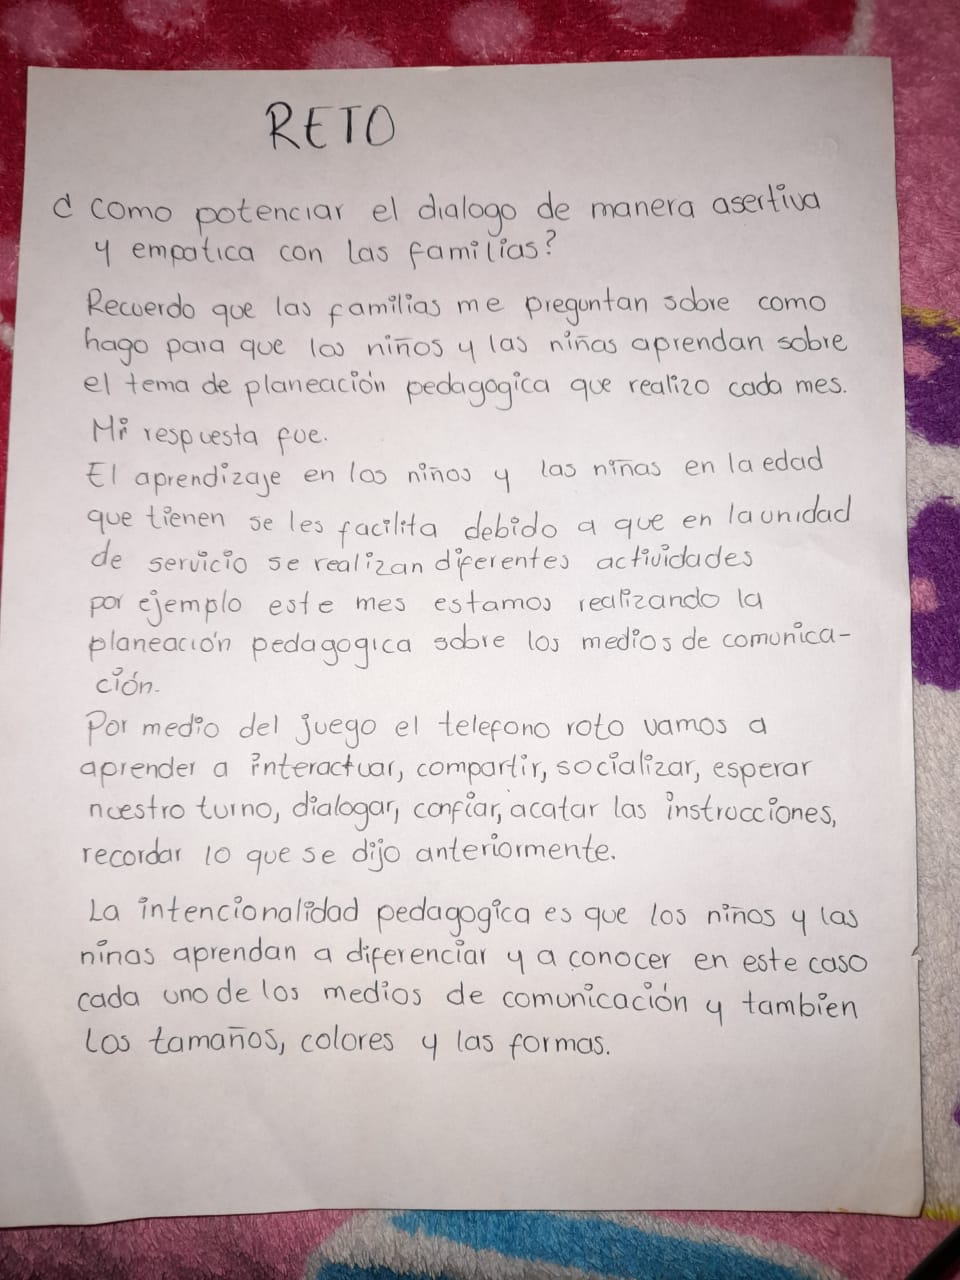 RETO
¿ Como potenciar el dialogo de manera asertiva
y empatica con las familias?
Recuerdo que las familias me preguntan sobre como
hago para que los niños y las niñas aprendan sobre
el tema de planeación pedagogica que realizo cada mes.
Mi respuesta fue.
El aprendizaje en los niños y las niñas en la edad
que tienen se les facilita debido a que en la unidad
de servicio se realizan diferentes actividades
por ejemplo este mes estamos realizando la
planeación pedagogica sobre los medios de comunica-
ción.
Por medio del juego el telefono roto vamos a
aprender a interactuar, compartir, socializar, esperar
nuestro turno, dialogar, confiar, acatar las instrucciones,
recordar lo que se dijo anteriormente.
La intencionalidad pedagogica es que los niños y las
ninas aprendan a diferenciar y a conocer en este caso
cada uno de los medios de comunicación y tambien
los tamaños, colores y las formas.